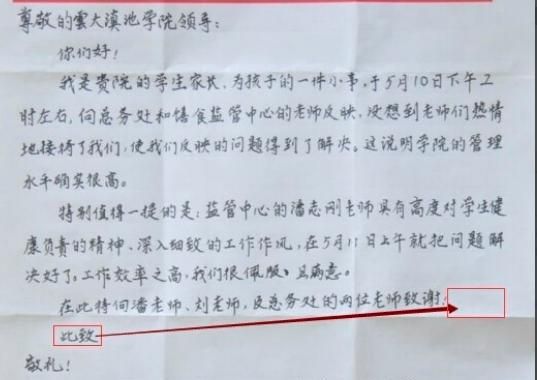 尊敬的雲大滇池学院领导：
你们好！
我是贵院的学生家长，为孩子的一件小事，于5月10日下午工
时左右，向总务处和膳食监管中心的老师反映，没想到老师们热情
地接待了我们，使我们反映的问题得到了解决。这说明学院的管理
水平确实很高。
特别值得一提的是：监管中心的潘志刚老师具有高度对学生健
康负责的精神、深入细致的工作作风，在5月11日上午就把问题解
决好了。工作效率之高，我们很佩服、且满意。
在此特向潘老师、刘老师，及总务处的两位老师致谢！
此致
敬礼！